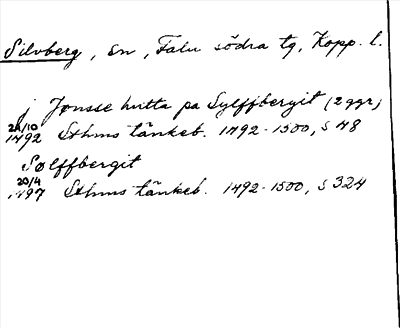 Silvberg, sn, Falu södra tg, Kopp. l.
j Jønsse hutta pa Sylffbergit (2 ggr)
24/10 1492 Sthms tänkeb. 1492-1500, s 48
Sølffbergit
20/4 1497 Sthms tänkeb. 1492-1500, s 324